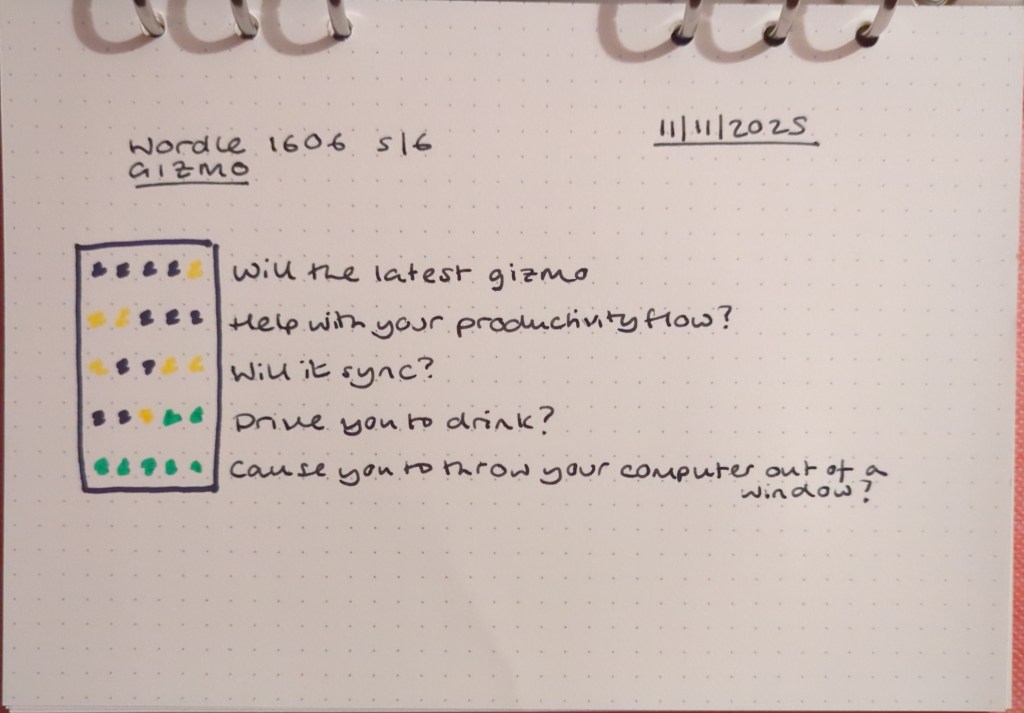 Wordle 1606 5/6
GIZMO
11/11/2025
Will the latest gizmo
Help with your productivity flow?
Will it sync?
Drive you to drink?
Cause you to throw your computer out of a
window?